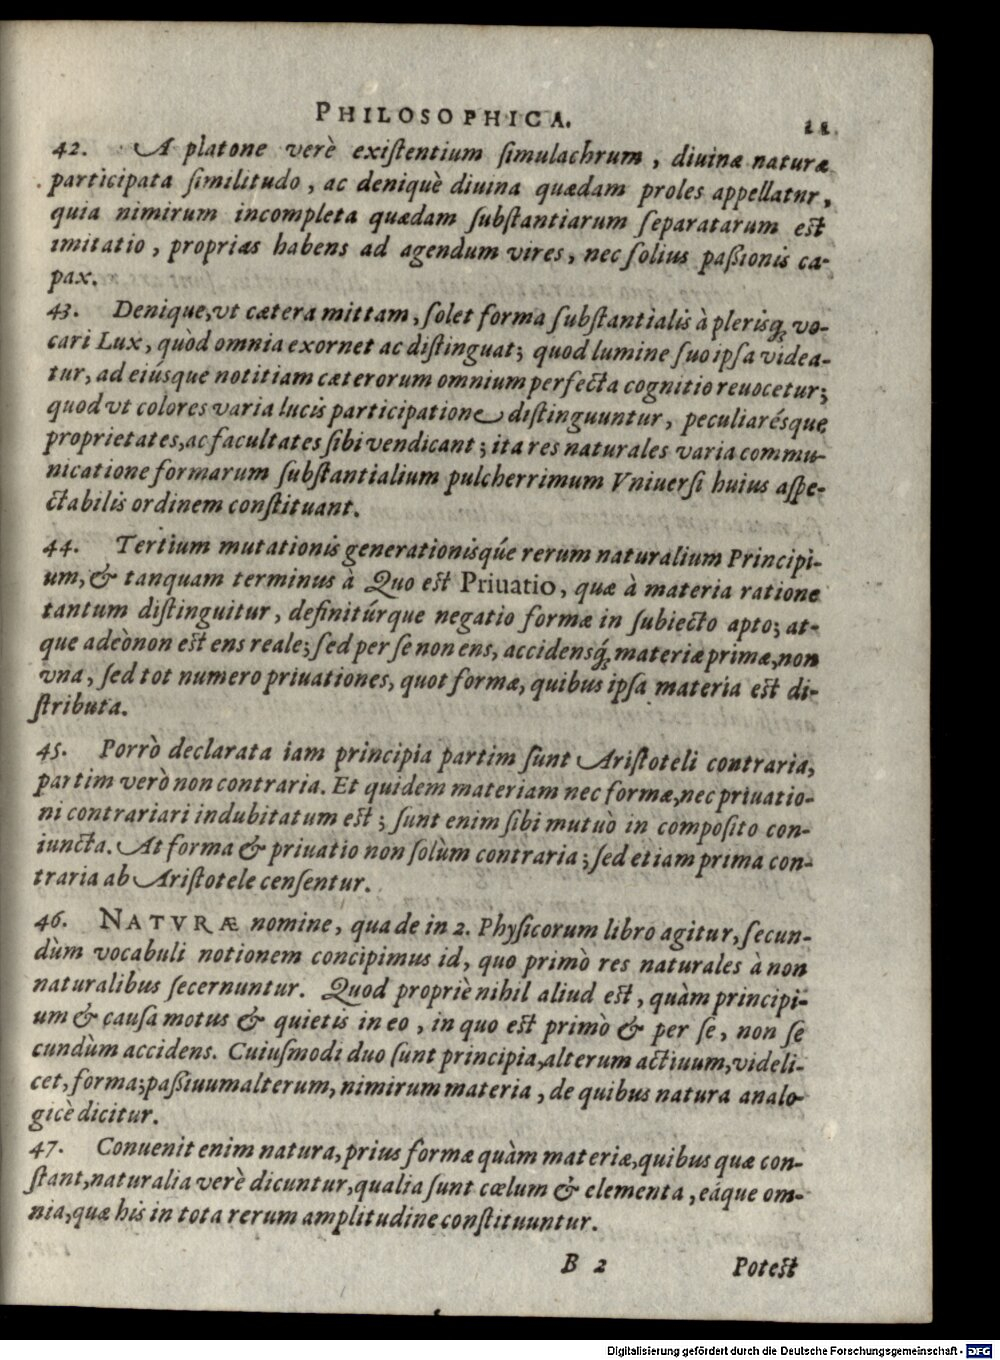 PHILOSOPHICA. 11
42. A platone verè exiſtentium ſimulachrum, diuinæ naturæ
participata ſimilitudo, ac deniquè diuina quædam proles appellatur,
quia nimirum incompleta quædam ſubſtantiarum ſeparatarum eſt
imitatio, proprias habens ad agendum vires, nec ſolius paßionis ca-
pax.
43. Denique, vt cætera mittam, ſolet forma ſubſtantialis à pleriſq́; vo-
cari Lux, quòd omnia exornet ac diſtinguat; quod lumine ſuo ipſa videa-
tur, ad eiúsque notitiam cæterorum omnium perfecta cognitio reuocetur;
quod vt colores varia lucis participatione diſtinguuntur, peculiarésque
proprietates, ac facultates ſibi vendicant; ita res naturales varia commu-
nicatione formarum ſubſtantialium pulcherrimum Vniuerſi huius aſpe-
ctabilis ordinem conſtituant.
44. Tertium mutationis generationisqúe rerum naturalium Principi-
um, & tanquam terminus à Quo eſt Priuatio, quæ à materia ratione
tantum diſtinguitur, definitúrque negatio formæ in ſubiecto apto; at-
que adeò non eſt ens reale; ſed per ſe non ens, accidensq́; materiæ primæ, non
vna, ſed tot numero priuationes, quot formæ, quibus ipſa materia eſt di-
ſtributa.
45. Porrò declarata iam principia partim ſunt Ariſtoteli contraria,
partim verò non contraria. Et quidem materiam nec formæ, nec priuatio-
ni contrariari indubitatum eſt; ſunt enim ſibi mutuò in compoſito con-
iuncta. At forma & priuatio non ſolùm contraria; ſed etiam prima con-
traria ab Ariſtotele cenſentur.
46. NATVRÆ nomine, qua de in 2. Phyſicorum libro agitur, ſecun-
dùm vocabuli notionem concipimus id, quo primò res naturales à non
naturalibus ſecernuntur. Quod propriè nihil aliud eſt, quàm principi-
um & cauſa motus & quietis in eo, in quo eſt primò & per ſe, non ſe
cundùm accidens. Cuiuſmodi duo ſunt principia, alterum actiuum, videli-
cet, forma; paßiuum alterum, nimirum materia, de quibus natura analo-
gicè dicitur.
47. Conuenit enim natura, prius formæ quàm materiæ, quibus quæ con-
ſtant, naturalia verè dicuntur, qualia ſunt cœlum & elementa, eáque om-
nia, quæ his in tota rerum amplitudine conſtituuntur.
B 2 Poteſt
Digitalisierung gefördert durch die Deutsche Forschungsgemeinschaft - DFG